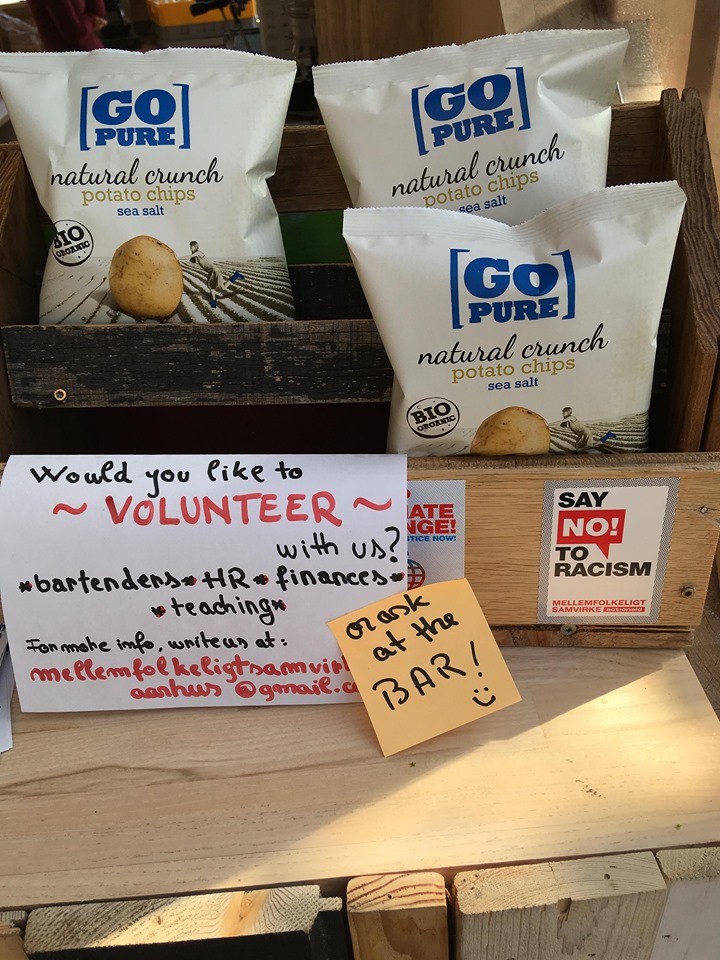 [GO
PURE]
natural crunch
potato chips
sea salt
BIO
ORGANIC
[GO
PURE]
natural crunch
potato chips
sea salt
[GO
PURE]
natural crunch
potato chips
sea salt
BIO
ORGANIC
Would you like to
~ VOLUNTEER ~
with us?
*bartenders* HR * finances*
* teaching*
For more info, write us at:
mellemfolkeligtsamvirk
aarhus@gmail.c
or ask
at the
BAR!
ATE
NGE!
STICE NOW!
SAY
NO!
TO
RACISM
MELLEMFOLKELIGT
SAMVIRKE actionaid